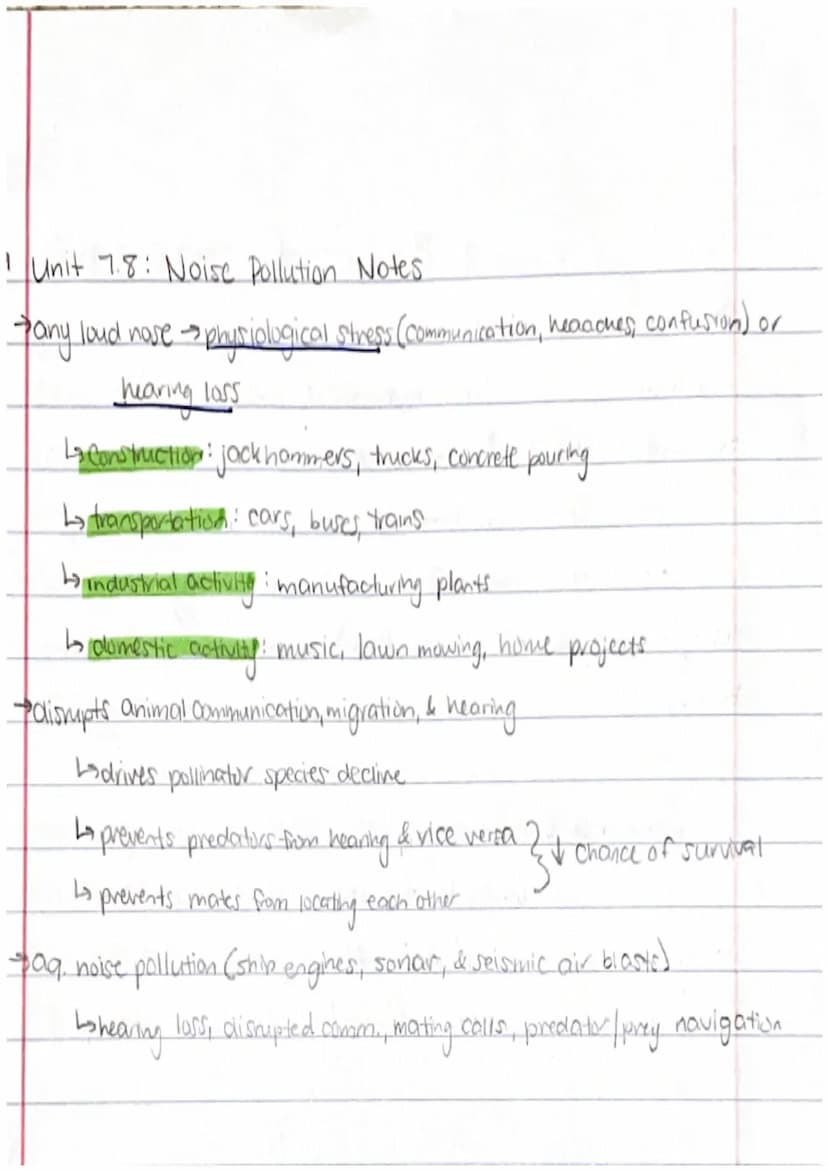 Unit 7.8: Noise Pollution Notes
→any loud nose → physiological stress (communication, heaaches, confusion) or
hearing loss
↳construction: jackhammers, trucks, concrete pouring
↳transportation: cars, buses, trains
↳industrial activity: manufacturing plants
↳domestic activity: music, lawn mowing, home projects
→disrupts animal communication, migration, & hearing
↳drives pollinator species decline
↳prevents predators from hearing & vice versa } ↓ chance of survival
↳prevents mates from locating each other
→aq. noise pollution (ship engines, sonar, & seismic air blasts)
↳hearing loss, disrupted comm., mating calls, predator/prey navigation